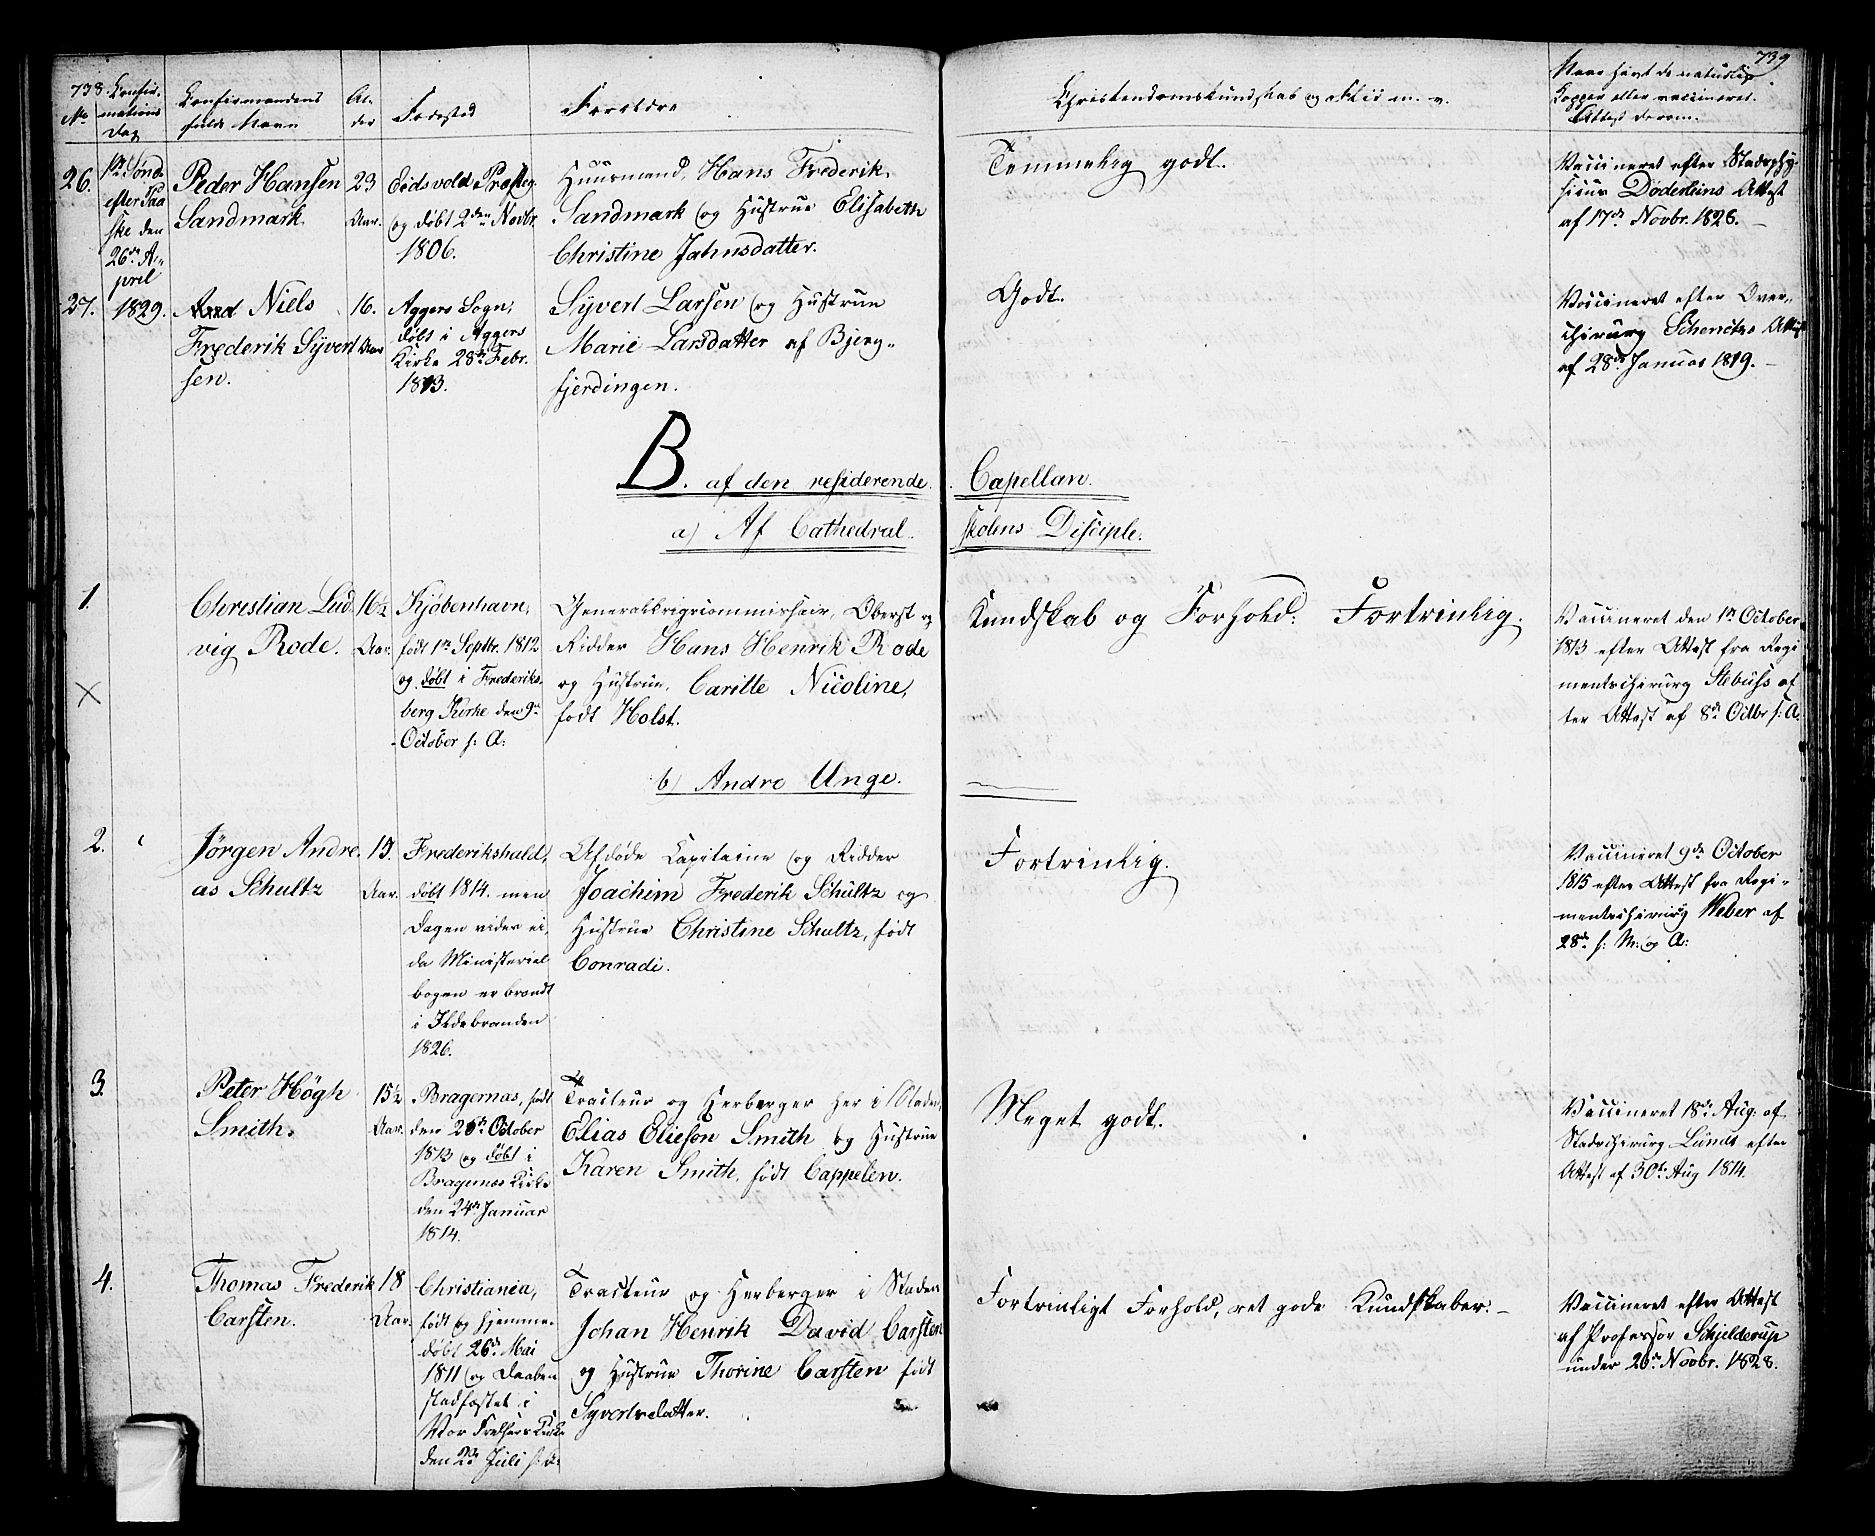 738.
No
Confir-
mations
Dag
Confirmandens
fulde Navn
Al-
der
Fødested
Forældre
26.
1ste Sønd.
efter Paa
ske den
26de A-
pril
1829.
Peder Hansen
Sandmark.
23
Aar.
Eidsvold Præsteg.
og døbt 2den Novbr.
1806.
Huusmand, Hans Frederik
Sandmark og Hustrue Elisabeth
Christine Jahnsdatter.
27.
Niels
Frederik Syvert
sen.
16.
Aar
Aggers Sogn,
døbt i Aggers
Kirke 28de Febr.
1813.
Syvert Larsen og Hustrue
Marie Larsdatter af Bjerg-
fjerdingen.
B. af den residerende
a) Af Cathedral
1.
Christian Lud
vig Rode.
16½
Aar.
Kjøbenhavn,
født 1ste Septbr. 1812
og døbt i Frederiks
berg Kirke den 9de
October s: A:
Generalkrigscommissair, Oberst og
Ridder Hans Henrik Rode
og Hustrue, Caritte Nicoline,
født Holst.
b) Andre Unge.
2.
Jørgen Andre
as Schultz
15.
Aar.
Frederikshald,
døbt 1814. men
Dagen vides ei,
da Ministerial
bogen er brændt
i Ildebranden
1826.
Afdøde Capitaine og Ridder
Joachim Frederik Schultz og
Hustrue Christine Schultz, født
Conradi.
3.
Peter Högh
Smith.
15½
Aar.
Bragernæs, født
den 26de October
1813 og døbt i
Bragernæs Kirke
den 24de Januar
1814.
Tracteur og Herberger her i Staden,
Elias Elieson Smith og Hustrue
Karen Smith, født Cappelen.
4.
Thomas Frederik
Carsten.
18
Aar.
Christiania,
født og hjemme-
døbt 26de Mai
1811 og Daaben
stadfæstet i
Vor Frelsers Kirke
den 23de Juli s: A:
Tracteur og Herberger i Staden
Johan Henrik David Carsten
og Hustrue Thorine Carsten født
Syvertsdatter.
739
Christendomskundskab og Flid m. v.
Naar havt de naturlige
Kopper eller vaccineret.
Attest derom.
Temmelig godt.
Vaccineret efter Stadsphy-
sicus Døderleins Attest
af 17de Novbr. 1826.
Godt.
Vaccineret efter Over-
chirurg Schencks Attest
af 28de Januar 1819.
Capellan.
skolens Disciple.
Kundskab og Forhold: Fortrinlig.
Vaccineret den 1ste October
1813 efter Attest fra Regi
mentschirurg Stebuss af
ter Attest af 8de Octbr s: A.
Fortrinlig.
Vaccineret 9de October
1815 efter Attest fra Regi-
mentschirurg Weber af
28de s: M: og A:
Meget godt.
Vaccineret 18de Aug. af
Stadschirurg Lunds efter
Attest af 30te Aug 1814.
Fortrinligt Forhold, ret gode Kundskaber.
Vaccineret efter Attest
af Professor Schjelderup
under 20de Novbr. 1828.